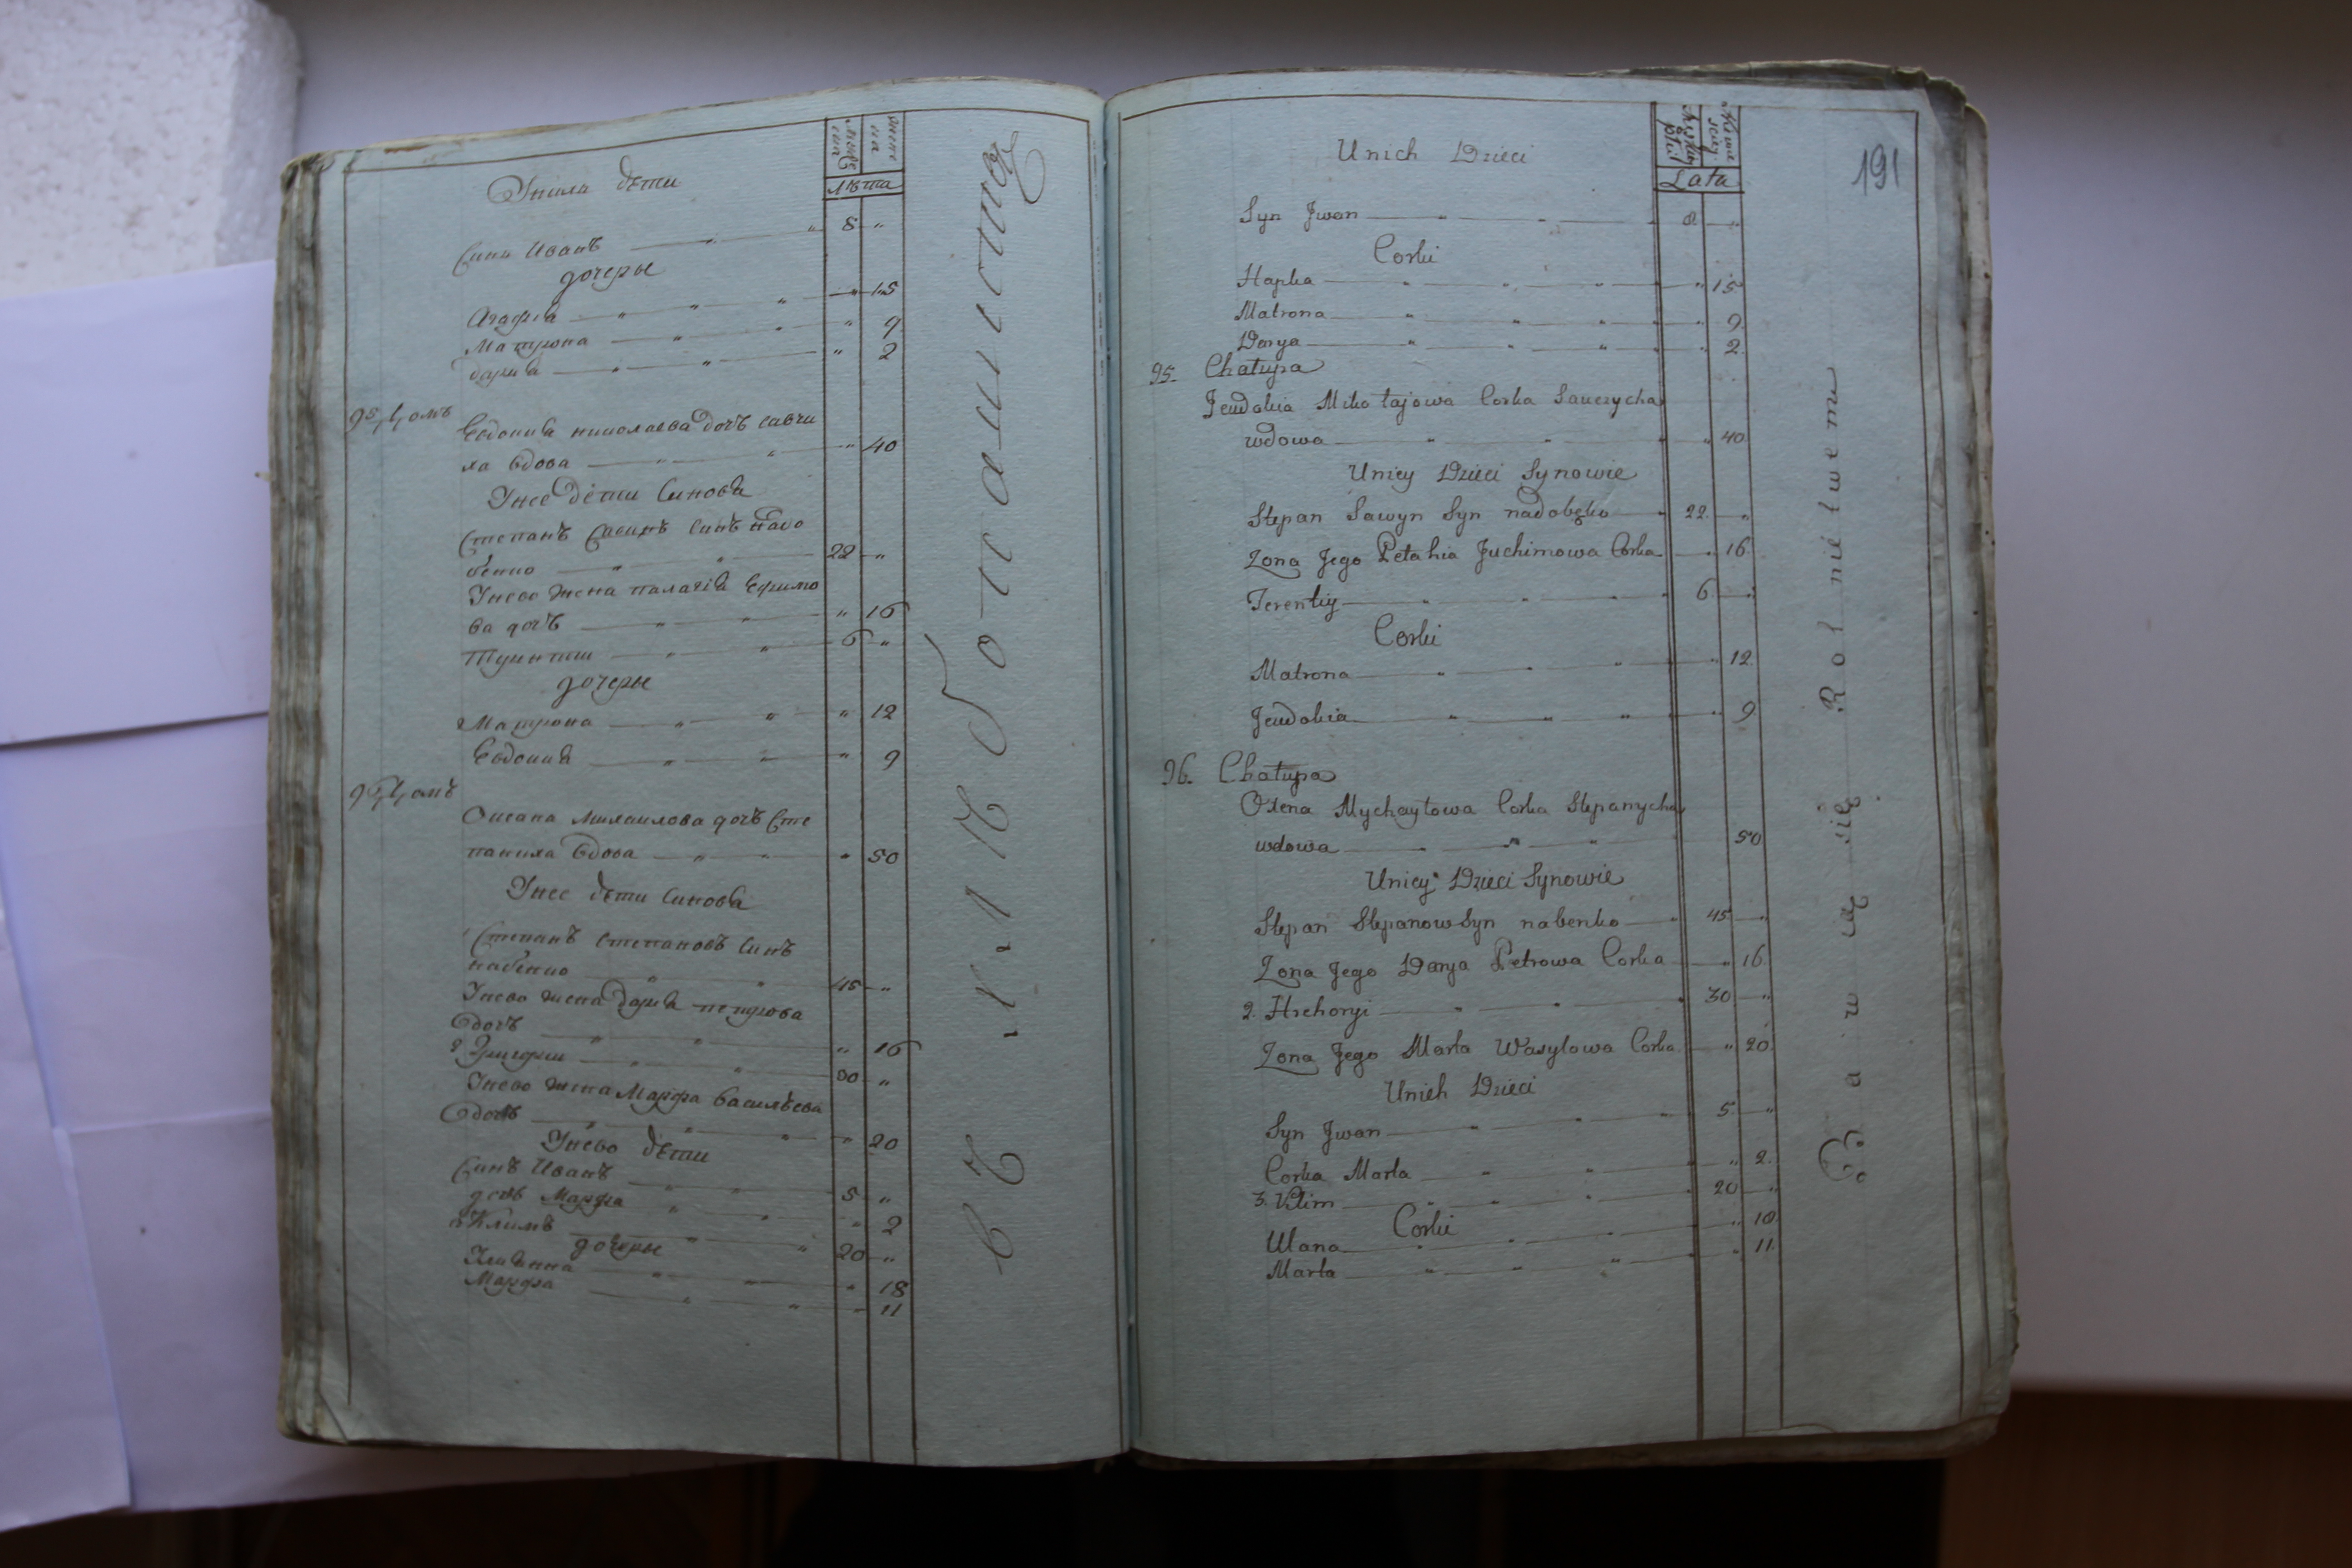 мужеска
женска
лѣта
У нихъ дѣти
Синъ Иванъ 8 "
дочеры
Агафия " 15
Матрона " 9
дария " 2
95, домъ
Евдокия николаева дочъ савчи
ха вдова " 40
У нее дѣти Синовя
Степанъ Савинъ синъ надо
бенко 22 "
У нево жена палагія Ефимо
ва дочъ " 16
6 "
дочеры
2 Матрона " 12
Евдокия " 9
96, домъ
Оксана михаилова дочъ Сте
паниха вдова " 50
У нее дѣти Синовя
Степанъ степановъ Синъ
набенко 45 "
У нево жена дария петрова
дочъ " 16
2 Григории 30 "
У нево жена Марфа василѣева
дочъ " 20
У нево дѣти
Синъ Иванъ 5 "
дочъ Марфа " 2
3 Климъ 20 "
дочеры
Улиянна " 18
Марфа " 11
191
Lata
Unich Dzieci
Syn Jwan 8 "
Corki
Hapka " 15
Matrona " 9
Darya " 2
95. Chałupa
Jewdokia Mikołajowa Corka Sawczycha
wdowa " 40
Uniey Dzieci Synowie
Stepan Sawyn Syn nadobęko 22 "
Zona Jego Pełahia Juchimowa Corka " 16
Terentiy 6 "
Corki
Matrona " 12
Jewdokia " 9
96. Chałupa
Oxena Mychayłowa Corka Stepanycha
wdowa 50
Uniey Dzieci Synowie
Stepan Stepanow Syn nabenko 45 "
Zona Jego Darya Petrowa Corka " 16
2. Hrehoryi 30 "
Zona Jego Marta Wasylowa Corka " 20
Unich Dzieci
Syn Jwan 5 "
Corka Marta " 2
3. Klim 20 "
Corki
Ulana " 18
Marta " 11
Bawią się Rolnictwem